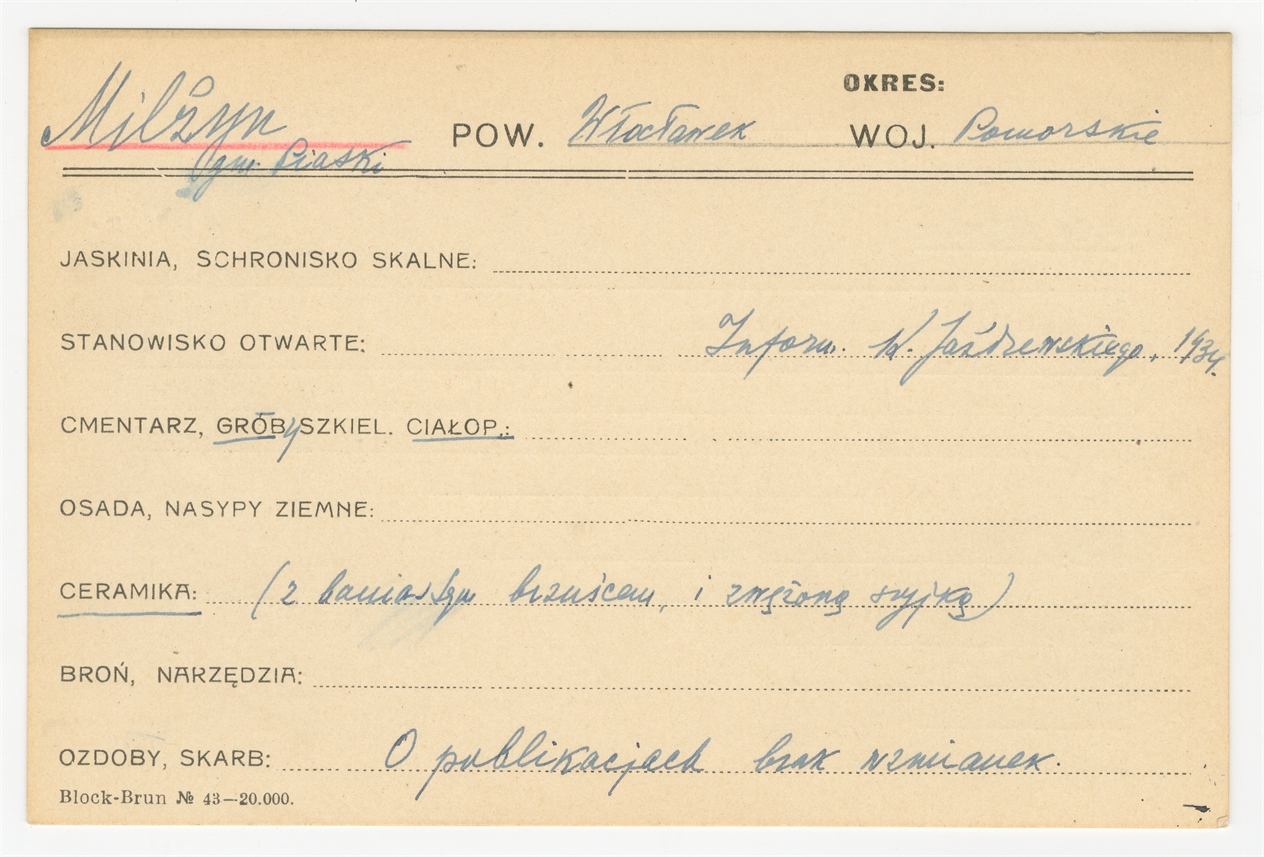 OKRES:
Milżyn POW. Włocławek WOJ. Pomorskie
gm. Piaski
JASKINIA, SCHRONISKO SKALNE:
STANOWISKO OTWARTE: Inform. K. Jażdżewskiego, 1934.
CMENTARZ, GRÓBy SZKIEL. CIAŁOP.:
OSADA, NASYPY ZIEMNE:
CERAMIKA: (z baniastym brzuścem, i zwężoną szyjką)
BROŃ, NARZĘDZIA:
OZDOBY, SKARB: O publikacjach brak wzmianek.
Block-Brun № 43—20.000.